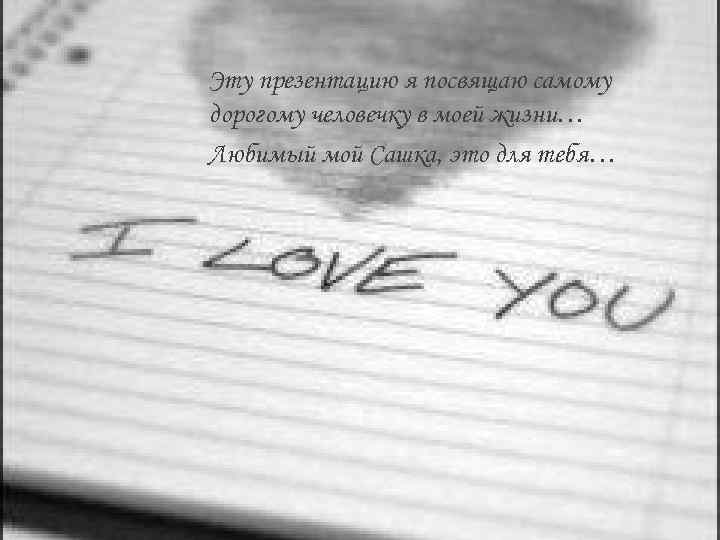 Эту презентацию я посвящаю самому
дорогому человечку в моей жизни…
Любимый мой Сашка, это для тебя…
I LOVE YOU